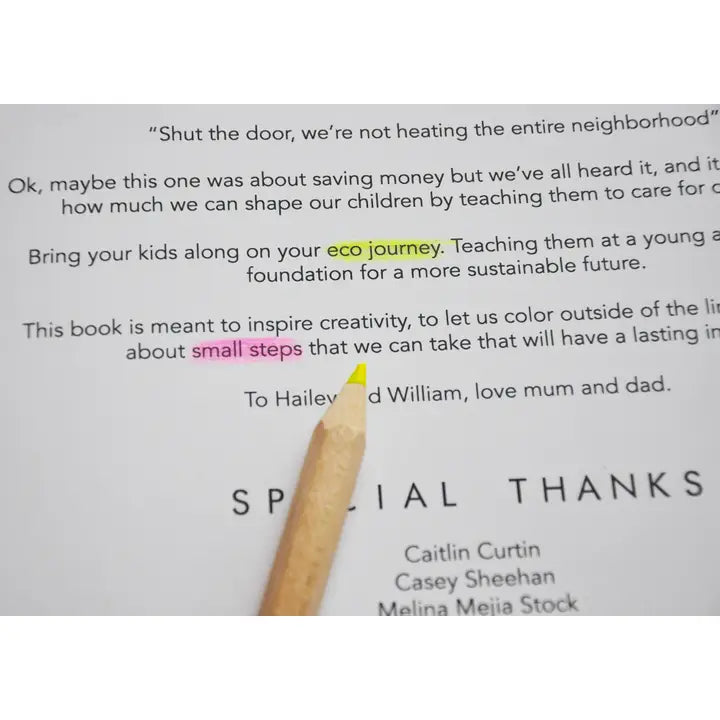 “Shut the door, we’re not heating the entire neighborhood”
Ok, maybe this one was about saving money but we’ve all heard it, and it
how much we can shape our children by teaching them to care for
Bring your kids along on your eco journey. Teaching them at a young
foundation for a more sustainable future.
This book is meant to inspire creativity, to let us color outside of the
about small steps that we can take that will have a lasting
To Hailey William, love mum and dad.
SPECIAL THANKS
Caitlin Curtin
Casey Sheehan
Melina Mejia Stock